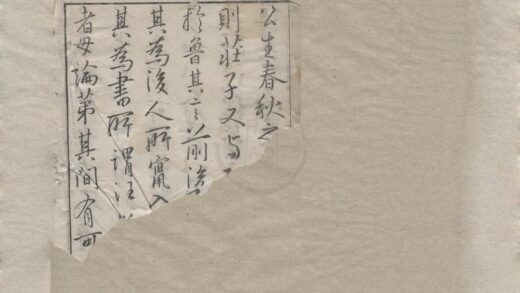 公生春秋之
則莊子又与
於魯其前後
其為後人所竄入
其為書所謂汪
者毋論第其間有可